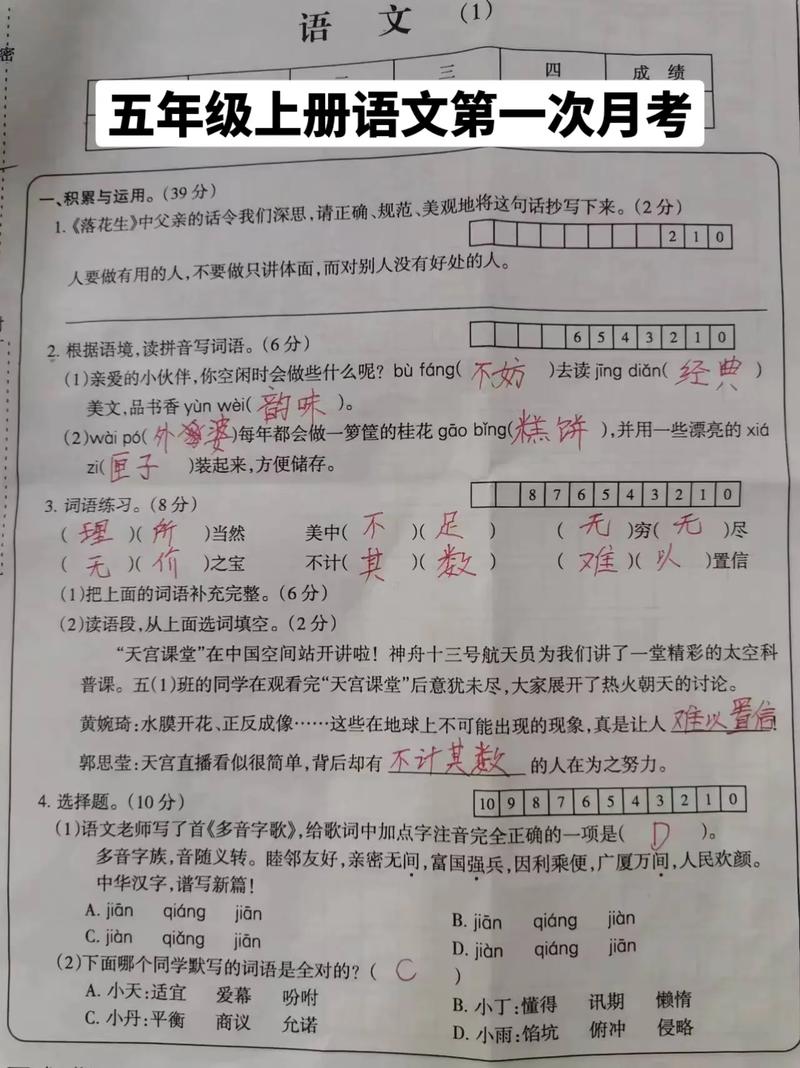 语 文 (1)
三 四 成 绩
五年级上册语文第一次月考
密
一、积累与运用。(39分)
1.《落花生》中父亲的话令我们深思,请正确、规范、美观地将这句话抄写下来。(2分)
2 1 0
人要做有用的人,不要做只讲体面,而对别人没有好处的人。
6 5 4 3 2 1 0
2. 根据语境,读拼音写词语。(6分)
(1)亲爱的小伙伴,你空闲时会做些什么呢? bù fáng( 不妨 )去读 jīng diǎn( 经典 )
美文,品书香 yùn wèi( 韵味 )。
(2)wài pó( 外婆 )每年都会做一箩筐的桂花 gāo bǐng( 糕饼 ),并用一些漂亮的 xiá
zi( 匣子 )装起来,方便储存。
8 7 6 5 4 3 2 1 0
3. 词语练习。(8分)
( 理 )( 所 )当然 美中( 不 )( 足 ) ( 无 )穷( 无 )尽
( 无 )( 价 )之宝 不计( 其 )( 数 ) ( 难 )( 以 )置信
(1)把上面的词语补充完整。(6分)
(2)读语段,从上面选词填空。(2分)
“天宫课堂”在中国空间站开讲啦! 神舟十三号航天员为我们讲了一堂精彩的太空科
普课。五(1)班的同学在观看完“天宫课堂”后意犹未尽,大家展开了热火朝天的讨论。
黄婉琦:水膜开花、正反成像……这些在地球上不可能出现的现象,真是让人 难以置信!
郭思莹:天宫直播看似很简单,背后却有 不计其数 的人在为之努力。
10 9 8 7 6 5 4 3 2 1 0
4. 选择题。(10分)
(1)语文老师写了首《多音字歌》,给歌词中加点字注音完全正确的一项是( D )。
多音字族,音随义转。睦邻友好,亲密无间,富国强兵,因利乘便,广厦万间,人民欢颜。
中华汉字,谱写新篇!
A. jiān qiáng jiān B. jiān qiáng jiàn
C. jiàn qiǎng jiān D. jiàn qiáng jiān
(2)下面哪个同学默写的词语是全对的? ( C )
A. 小天:适宜 爱幕 吩咐 B. 小丁:懂得 讯期 懒惰
C. 小丹:平衡 商议 允诺 D. 小雨:馅坑 俯冲 侵略